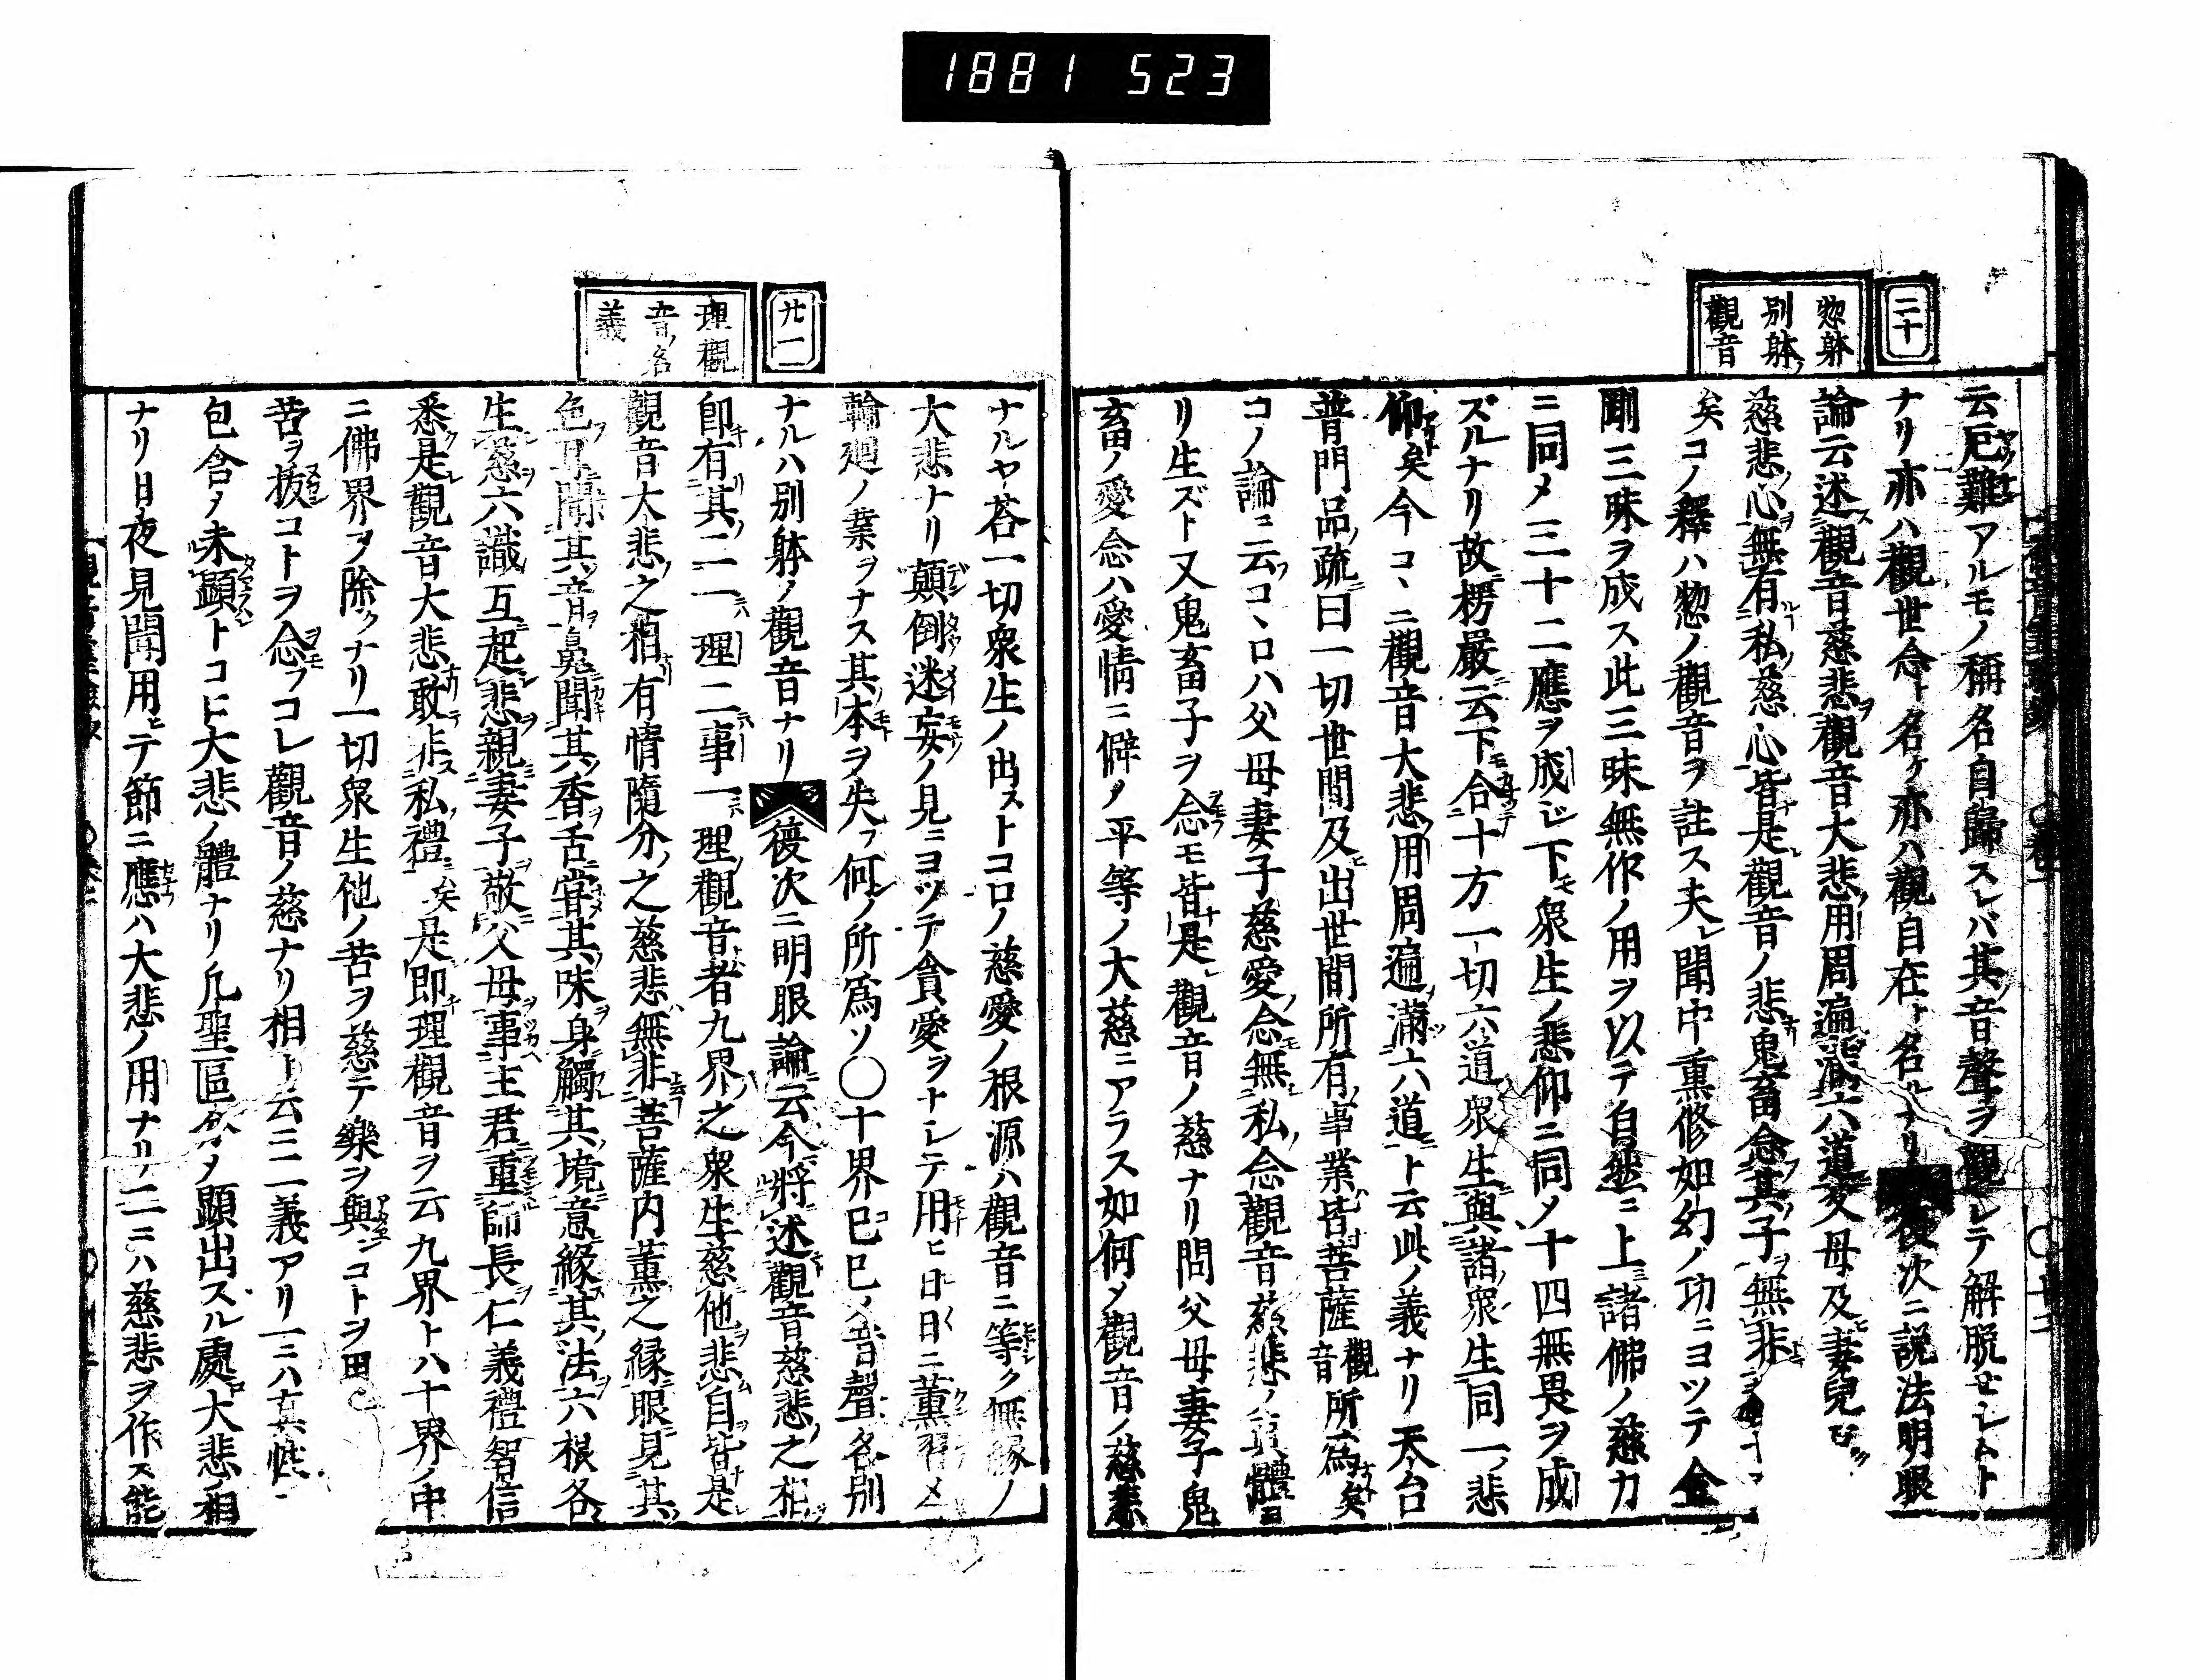 1881 523
二十
惣躰
別躰
觀音
云厄難アルモノ稱名自歸スレバ其音聲ヲ觀シテ解脱セシムト
ナリ亦ハ觀世念ト名ケ亦ハ觀自在ト名ルナリ 復次ニ説法明眼
論云述觀音慈悲觀音大悲用周遍滿六道父母及妻兒
慈悲心無有私慈心皆是觀音ノ悲鬼畜念其子無非
矣コノ釋ハ惣ノ觀音ヲ註ス夫レ聞中熏修如幻ノ功ニヨツテ金
剛三昧ヲ成ス此三昧無作ノ用ヲ以テ自然ニ上諸佛ノ慈力
ニ同メ三十二應ヲ成シ下モ衆生ノ悲仰ニ同メ十四無畏ヲ成
ズルナリ故楞嚴云下合十方一切六道衆生與諸衆生同一悲
仰矣今コヽニ觀音大悲用周遍滿六道ト云此ノ義ナリ天台
普門品疏曰一切世間及出世間所有事業皆菩薩觀音所爲矣
コノ論ニ云コヽロハ父母妻子慈愛念無私念觀音慈悲ノ眞體ヨ
リ生ズト又鬼畜子ヲ念モ皆是觀音ノ慈ナリ問父母妻子鬼
畜ノ愛念ハ愛情ニ僻ノ平等ノ大慈ニアラス如何メ觀音ノ慈悲
廿一
理觀
音名
義
ナルヤ荅一切衆生ノ出ストコロノ慈愛ノ根源ハ觀音ニ等ク無縁ノ
大悲ナリ顛倒迷妄ノ見ニヨツテ貪愛ヲトレテ用ヒ日日ニ薫習メ
輪廻ノ業ヲナス其本ヲ失フ何ノ所爲ソ○十界巳巳ノ音聲各別
ナルハ別躰ノ觀音ナリ 復次ニ明眼論云今將述觀音慈悲之相
即有其二一理二事一理觀音者九界之衆生慈他悲自皆是
觀音大悲之相有情隨分之慈悲無非菩薩内薫之縁眼見其
色耳聞其音鼻聞其香舌甞其味身觸其境意縁其法六根各
生慈六識互起悲親妻子敬父母事主君重師長仁義禮智信
悉是觀音大悲敢非私禮矣是即理觀音ヲ云九界ト八十界ノ中
ニ佛界ヲ除クナリ一切衆生他ノ苦ヲ慈テ樂ヲ與ンコトヲ
苦ヲ拔コトヲ念フコレ觀音ノ慈ナリ相ト云ニ二義アリ一ニハ
包含メ未顯トコヒ大悲ノ體ナリ凡聖區メ顯出スル處大悲ノ相
ナリ日夜見聞用ヒテ節ニ應ハ大悲ノ用ナリ二ニハ慈悲ヲ作ス能